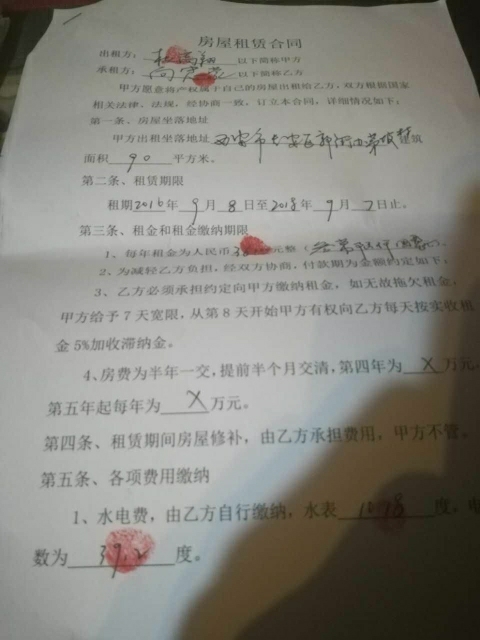 房屋租赁合同
出租方： 以下简称甲方
承租方：向 以下简称乙方
甲方愿意将产权属于自己的房屋出租给乙方，双方根据国家
相关法律、法规，经协商一致，订立本合同，详细情况如下：
第一条、房屋坐落地址
甲方出租坐落地址 西安市长安区 建筑
面积 90 平方米。
第二条、租赁期限
租期2016年 9 月 8 日至2018年 9 月 7 日止。
第三条、租金和租金缴纳期限
1、每年租金为人民币 元整（
2、为减轻乙方负担，经双方协商，付款期为金额约定如下：
3、乙方必须承担约定向甲方缴纳租金，如无故拖欠租金，
甲方给予7天宽限，从第8天开始甲方有权向乙方每天按实收租
金5%加收滞纳金。
4、房费为半年一交，提前半个月交清，第四年为 X 万元，
第五年起每年为 X 万元。
第四条、租赁期间房屋修补，由乙方承担费用，甲方不管。
第五条、各项费用缴纳
1、水电费，由乙方自行缴纳，水表 度，电
数为 39.2 度。